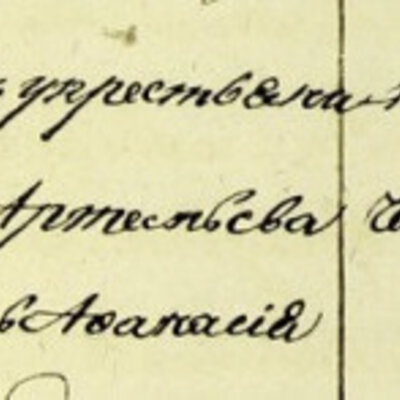 у крестьяни
Артемьева
Аѳанасія